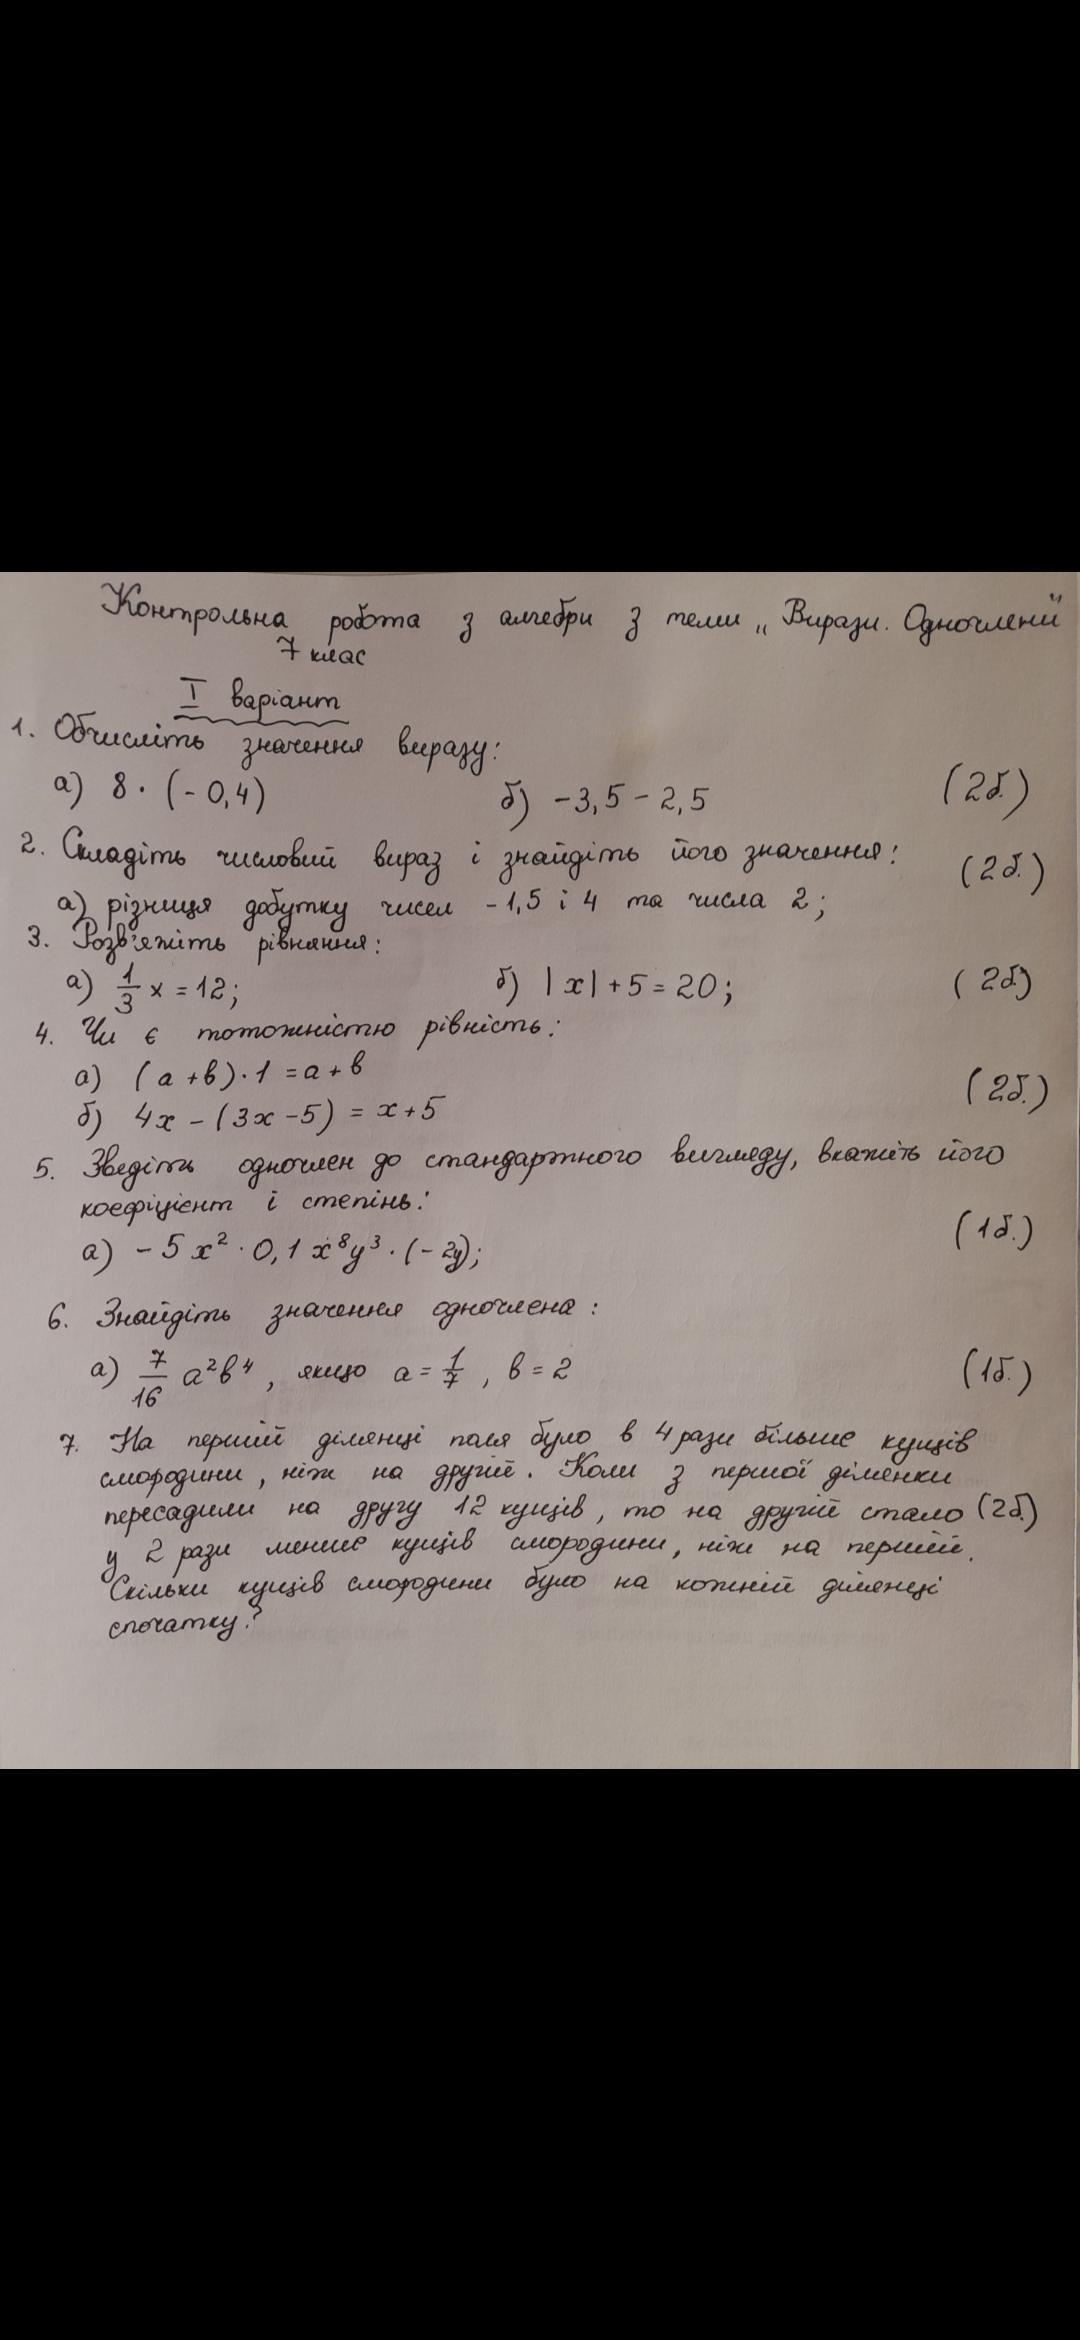 Контрольна робота з алгебри з теми „Вирази. Одночлени"
7 клас
I варіант
1. Обчисліть значення виразу:
а) 8 · (-0,4) б) -3,5 - 2,5 (2б.)
2. Складіть числовий вираз і знайдіть його значення: (2б.)
а) різниця добутку чисел -1,5 і 4 та числа 2;
3. Розв'яжіть рівняння:
а) 1/3 x = 12; б) |x| + 5 = 20; (2б)
4. Чи є тотожністю рівність:
а) (а + в) · 1 = а + в
б) 4x - (3x - 5) = x + 5 (2б.)
5. Зведіть одночлен до стандартного вигляду, вкажіть його
коефіцієнт і степінь:
а) -5x² · 0,1x⁸y³ · (-2y); (1б.)
6. Знайдіть значення одночлена:
а) 7/16 a²в⁴, якщо а = 1/7, в = 2 (1б.)
7. На першій ділянці поля було в 4 рази більше кущів
смородини, ніж на другій. Коли з першої ділянки
пересадили на другу 12 кущів, то на другій стало (2б.)
у 2 рази менше кущів смородини, ніж на першій.
Скільки кущів смородини було на кожній ділянці
спочатку?